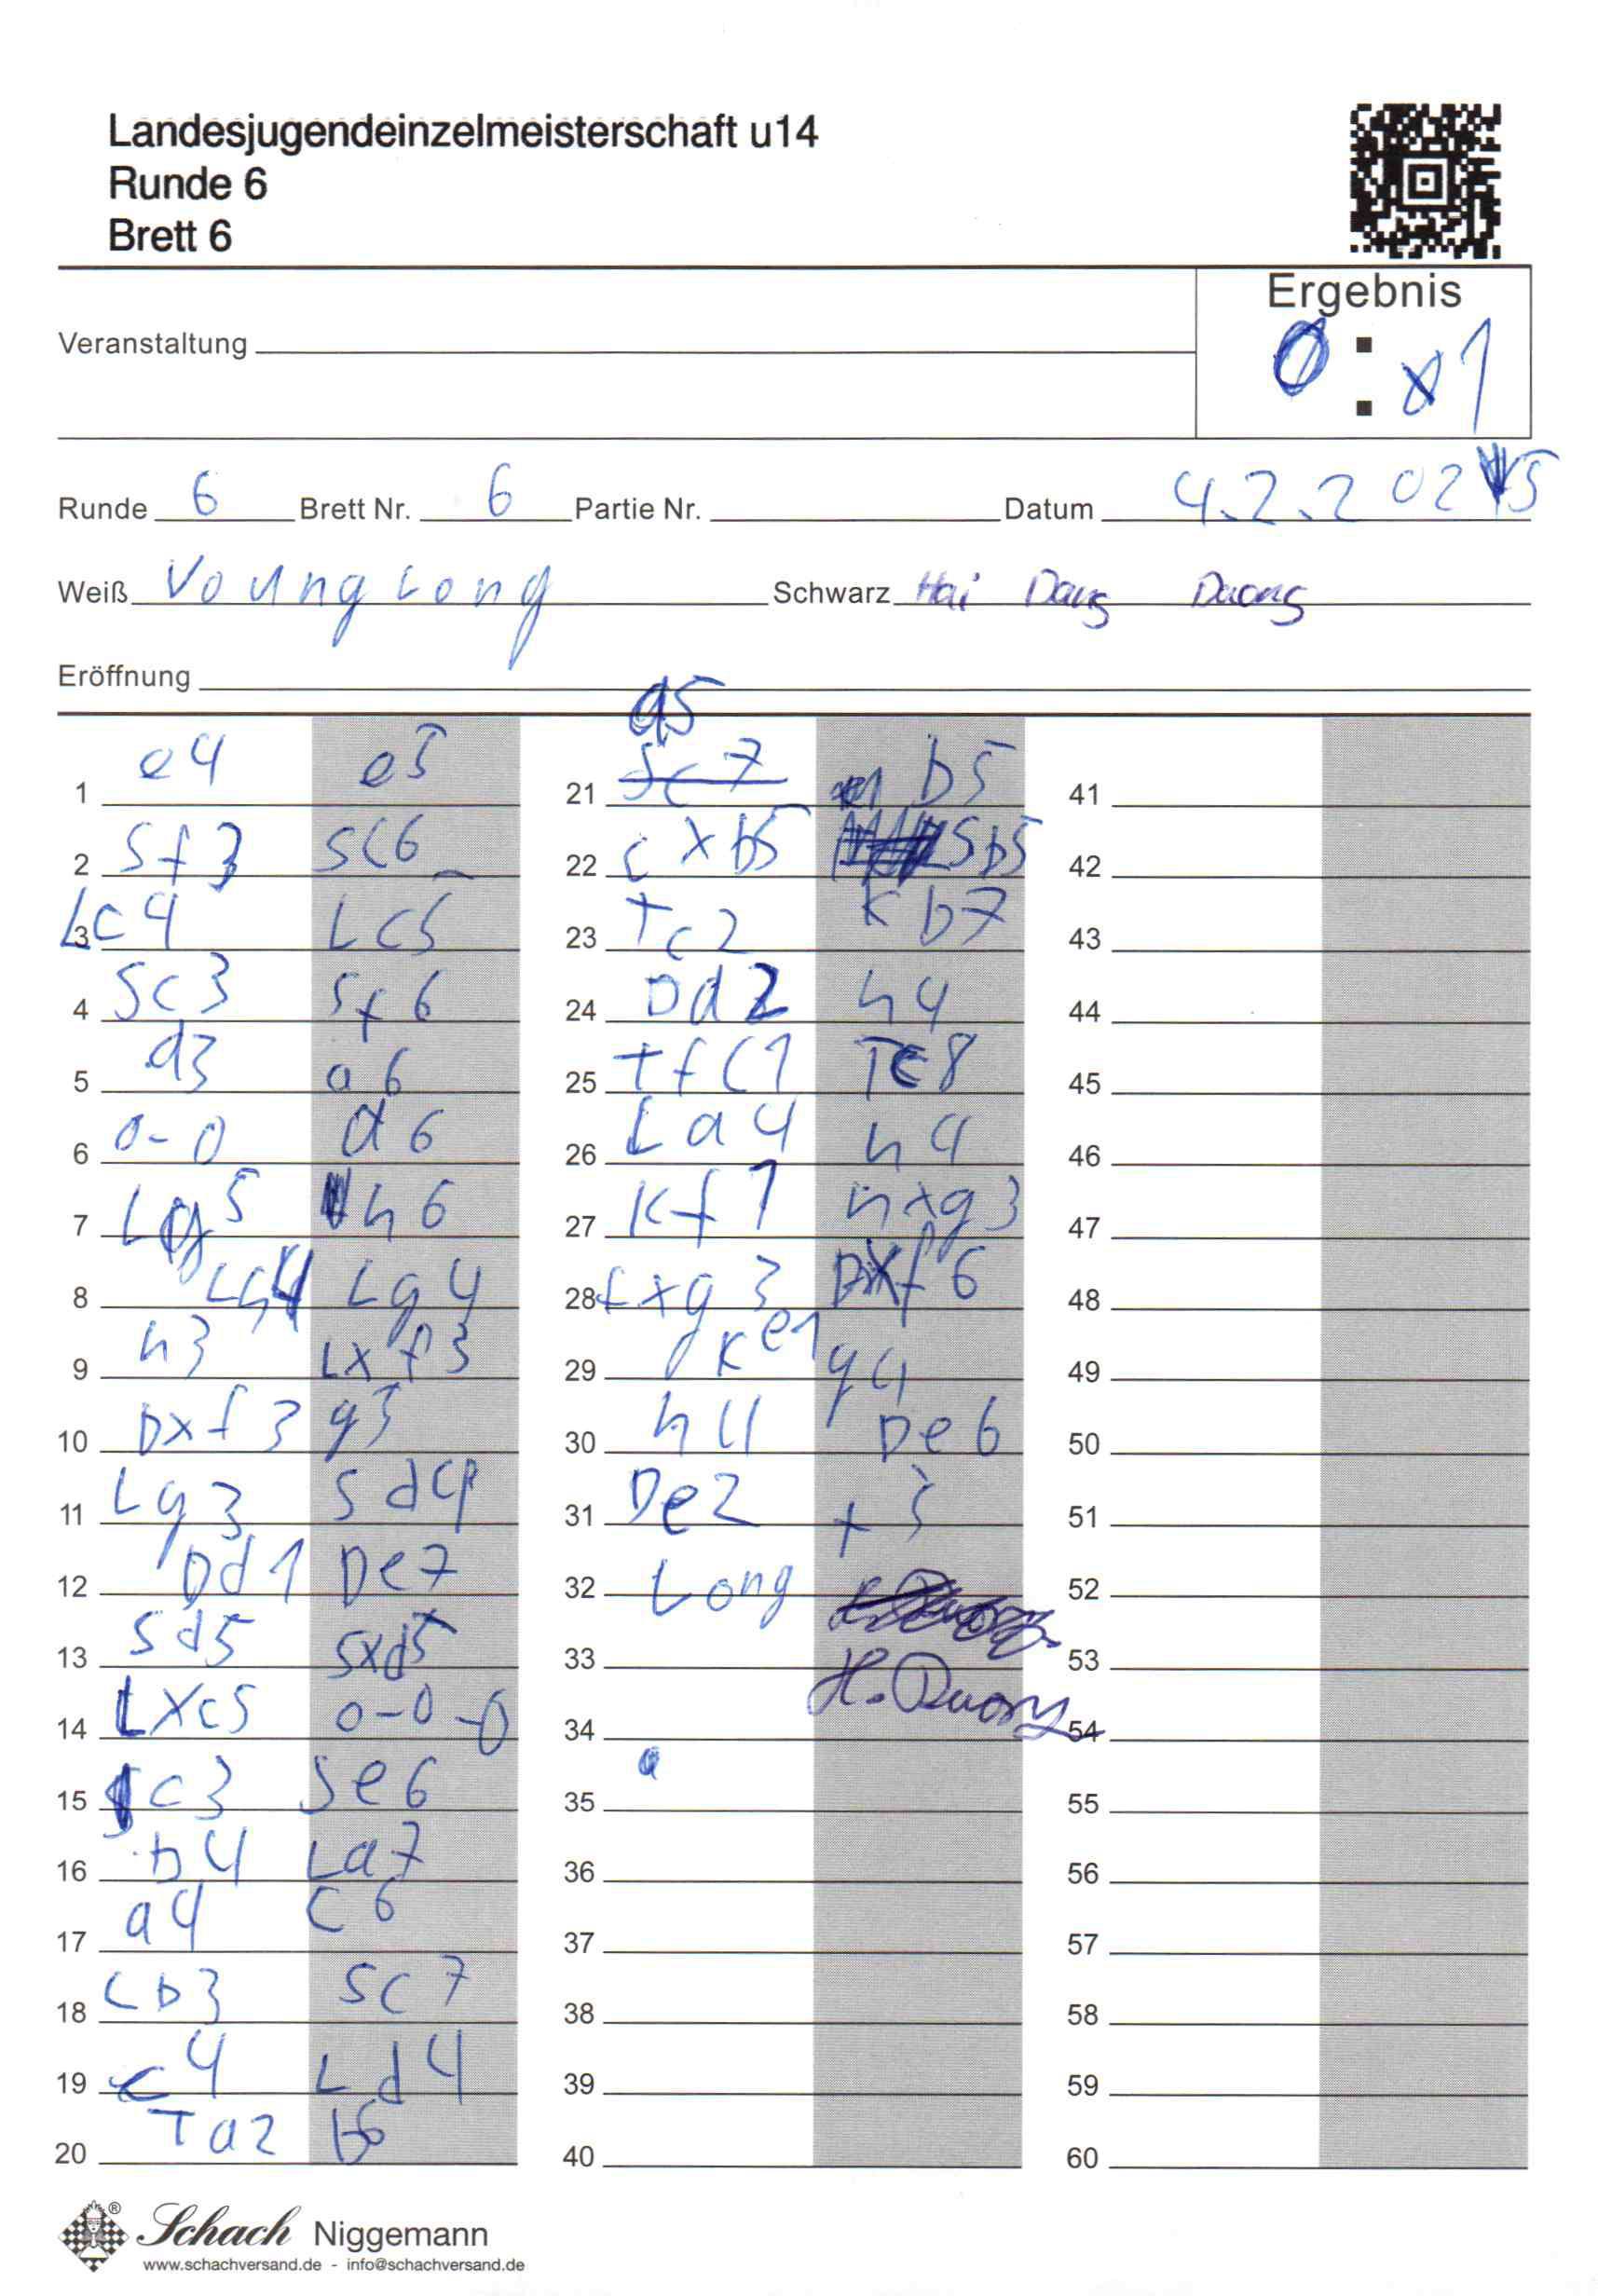 Landesjugendeinzelmeisterschaft u14
Runde 6
Brett 6
Ergebnis
Veranstaltung
0 : 1
Runde 6 Brett Nr. 6 Partie Nr. Datum 4.2.2025
Weiß Vo ung Long Schwarz Hai Dang Duong
Eröffnung
a5
1 e4 e5 21 b5 41
2 Sf3 Sc6 22 cxb5 Sb5 42
3 Lc4 Lc5 23 Tc2 Kb7 43
4 Sc3 Sf6 24 Dd2 h4 44
5 d3 a6 25 Tfc1 Tc8 45
6 0-0 d6 26 La4 h4 46
7 Lg5 h6 27 Kf1 hxg3 47
8 Lh4 Lg4 28 fxg3 Dxf6 48
9 h3 Lxf3 29 Ke1 g4 49
10 Dxf3 g5 30 h4 De6 50
11 Lg3 Sd4 31 De2 f5 51
12 Dd1 De7 32 Long 52
13 Sd5 Sxd5 33 H. Duong 53
14 Lxc5 0-0-0 34 54
15 c3 Se6 35 55
16 b4 La7 36 56
17 a4 c6 37 57
18 Lb3 Sc7 38 58
19 c4 Ld4 39 59
20 Ta2 b6 40 60
Schach Niggemann
www.schachversand.de - info@schachversand.de